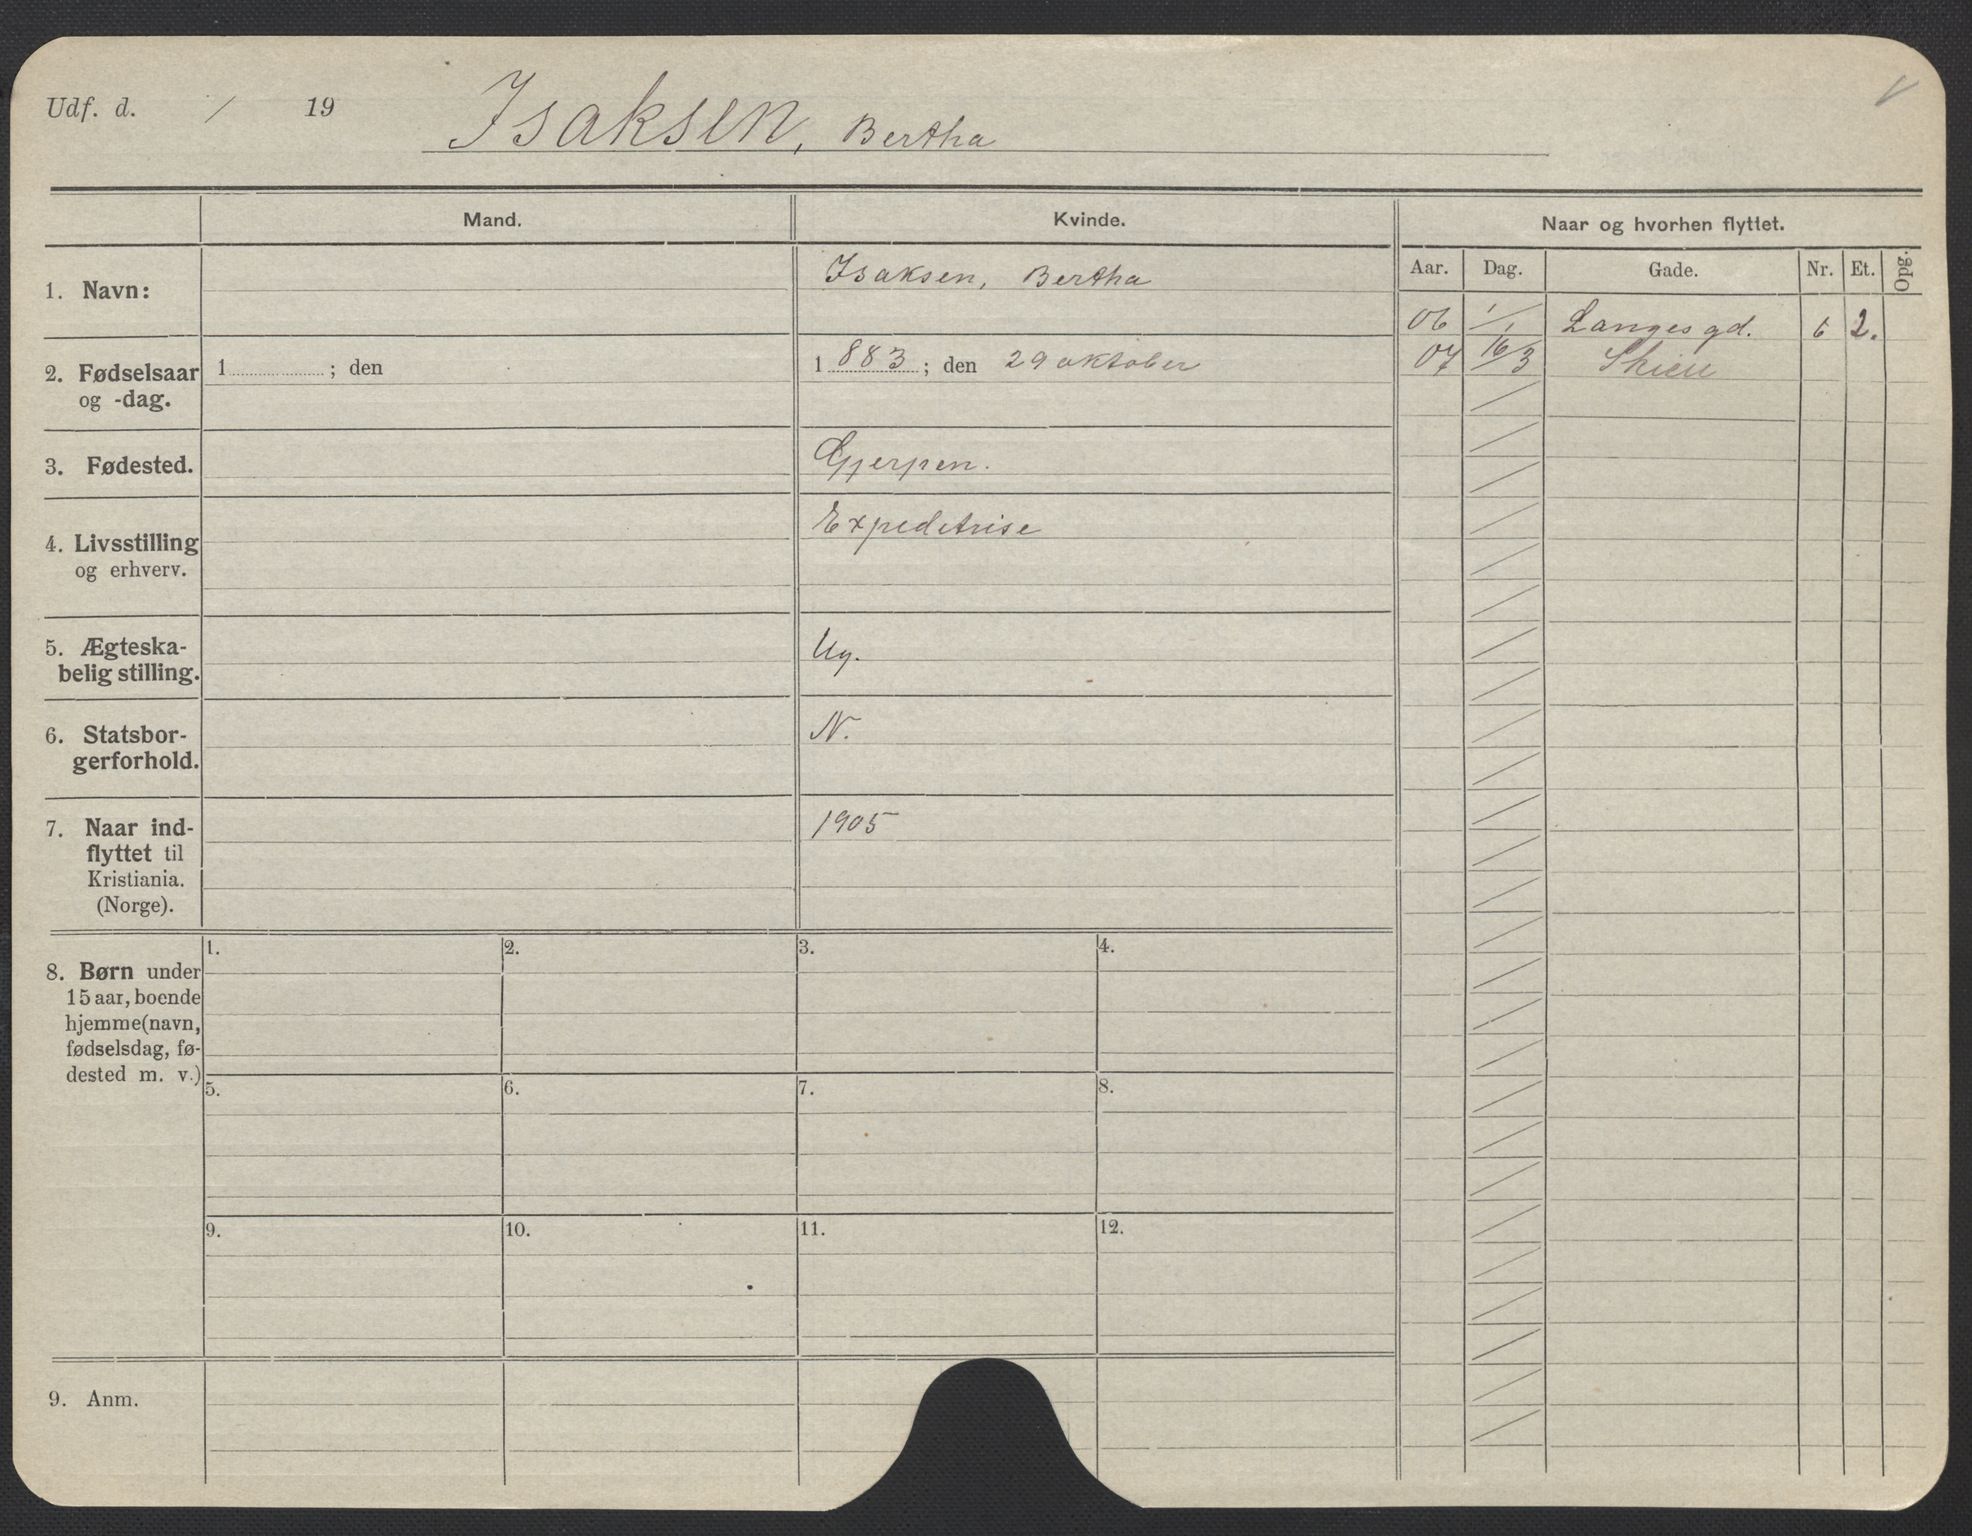 Udf. d. / 19 Isaksen, Bertha
Mand. Kvinde. Naar og hvorhen flyttet.
Aar. Dag. Gade. Nr. Et. Opg.
1. Navn: Isaksen, Bertha
06 1/1 Langes gd. 6 2.
07 16/3 Skien
2. Fødselsaar 1 ; den 1 883 ; den 29 oktober
og -dag.
3. Fødested. Gjerpen.
4. Livsstilling Expeditrise
og erhverv.
5. Ægteska- Ug.
belig stilling.
6. Statsbor- N.
gerforhold.
7. Naar ind- 1905
flyttet til
Kristiania.
(Norge).
1. 2. 3. 4.
8. Børn under
15 aar, boende
hjemme (navn,
fødselsdag, fø-
dested m. v.)
5. 6. 7. 8.
9. 10. 11. 12.
9. Anm.